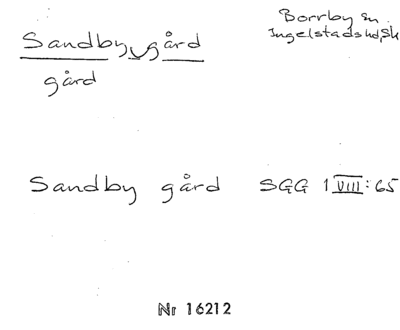 Borrby sn
Ingelstads hd, Sk
Sandby gård
gård
Sandby gård SGG 1 VIII: 65
Nr 16212